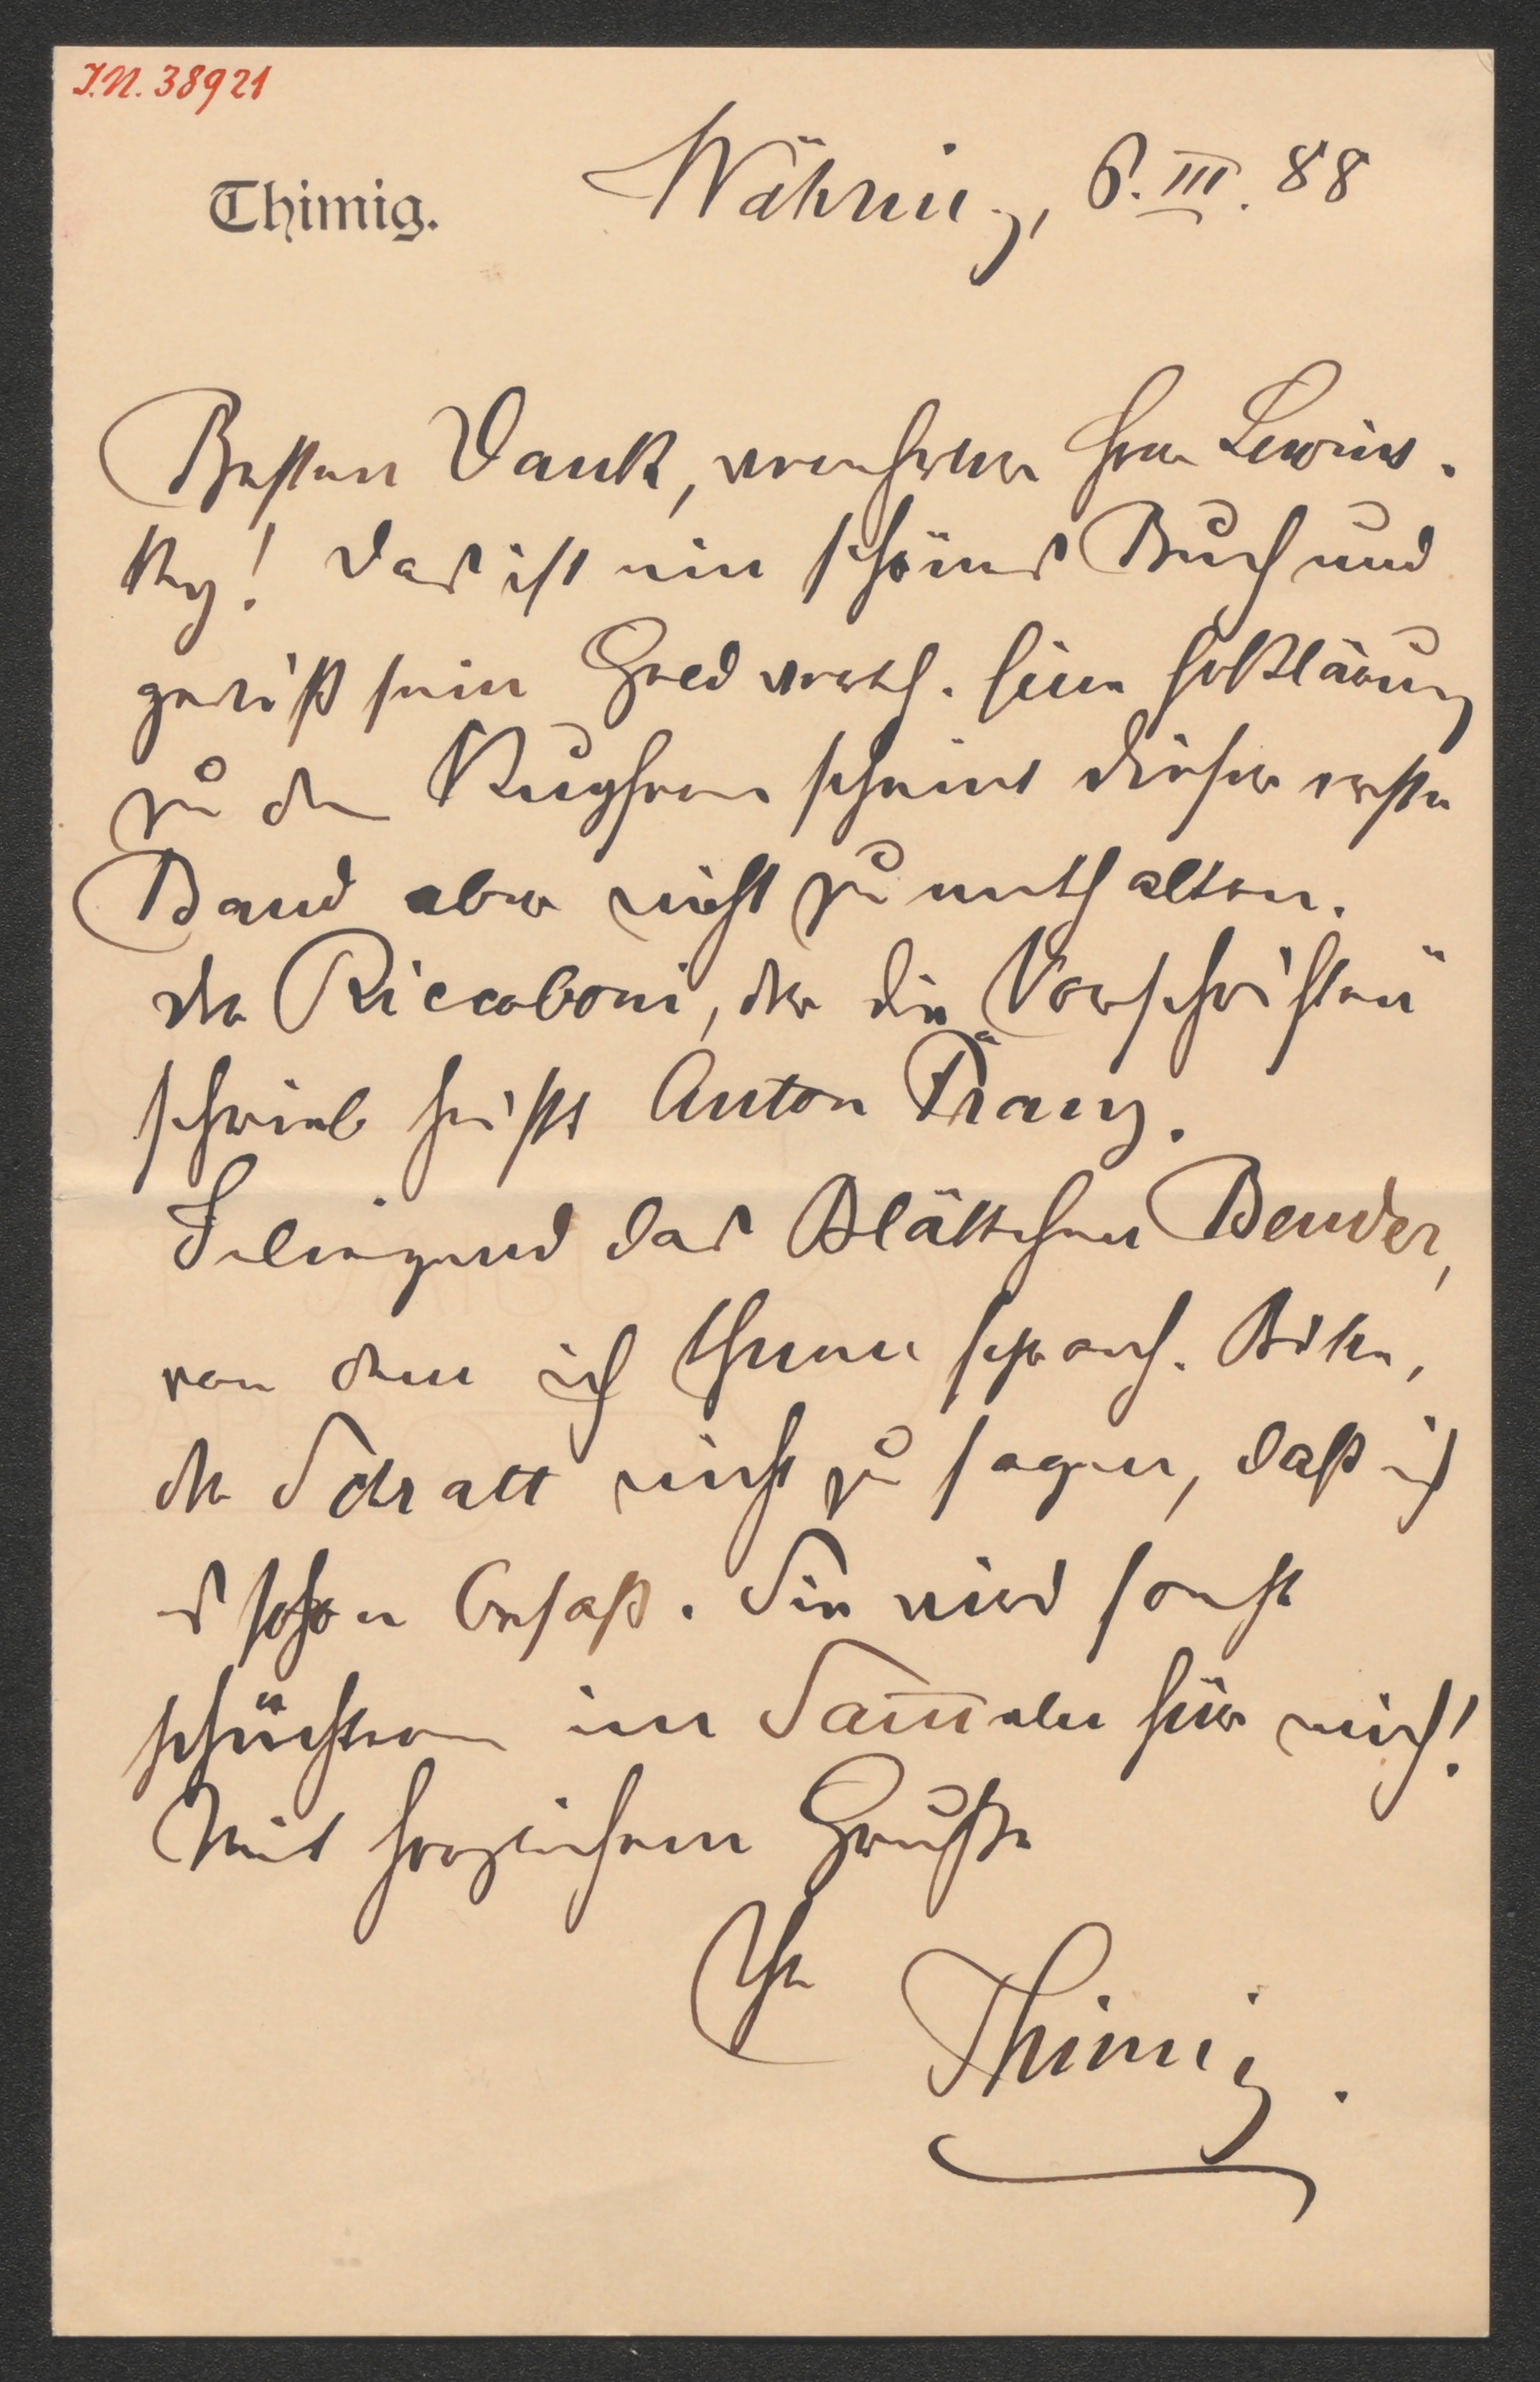 I.N. 38921
Thimig.
Währing, 6. III. 88
Besten Dank, verehrter Herr Lewins-
ky! Das ist ein schönes Buch und
gewiß sein Geld werth. Eine Erklärung
zu den scheint dieser erste
Band aber nicht zu enthalten.
Der Riccoboni, der die Vorschriften
schrieb heißt Anton Franz.
Inliegend das Blättchen Bender,
von dem ich Ihnen sprach. Bitte,
der Schratt nicht zu sagen, daß ich
es schon besaß. Sie wird sonst
schüchtern im Sam̅eln für mich!
Mit herzlichem Gruße
Ihr Thimig.